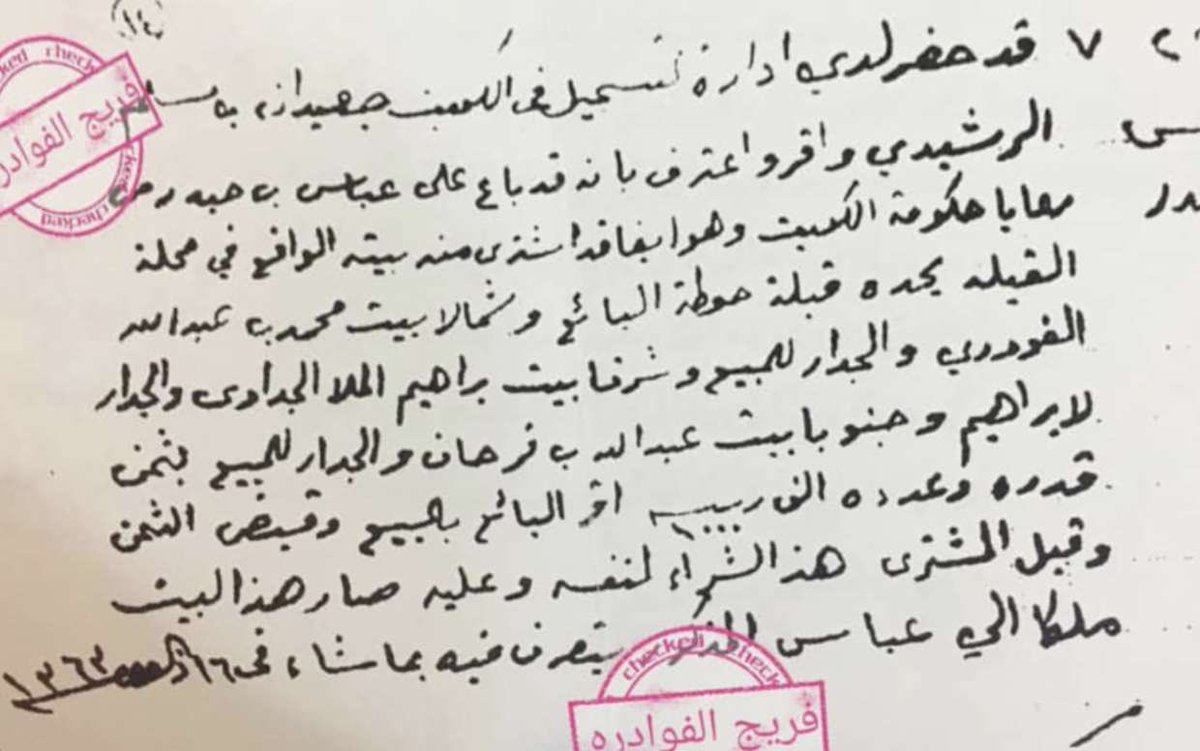 (١٤)
٧ قد حضر لدي ادارة تسجيل في الكويت جعيدان بن سالم
الرشيدي واقر واعترف بانه قد باع على عباس بن حيدر من
رعايا حكومة الكويت وهو ايضا قد اشترى منه بيته الواقع في محلة
القبلة يحده قبلة حوطة البائع وشمالا بيت محمد بن عبدالله
الفودري والجدار للمبيع وشرقا بيت براهيم الملا الجدادي والجدار
لابراهيم وجنوبا بيت عبدالله بن فرحان والجدار للمبيع بثمن
قدره وعدده الف ربيه ١٠٠٠ اقر البائع بالمبيع وقبض الثمن
وقبل المشترى هذ الشراء لنفسه وعليه صار هذ البيت
ملكا الي عباس المذكور يتصرف فيه بماشاء في ١٦ ١٣٦٣
checked checked
فريج الفوادره
checked
checked check
فريج الفوادره